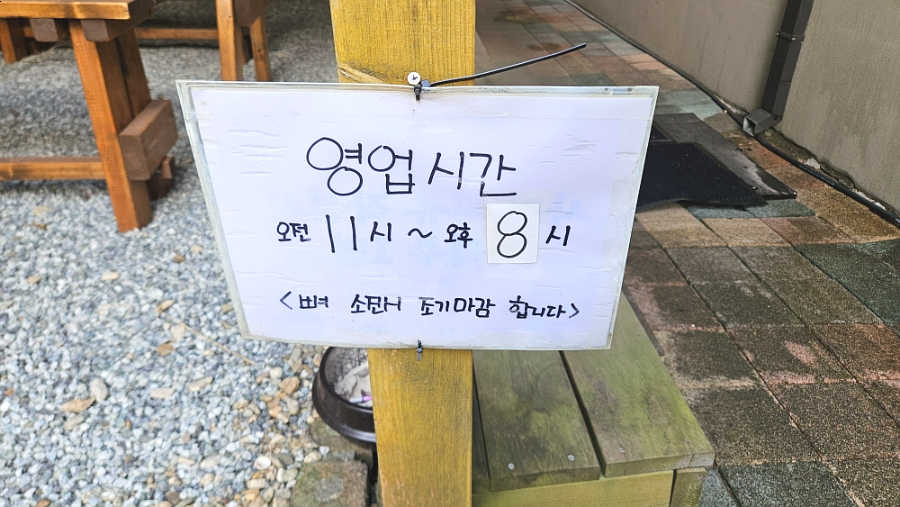 영업시간
오전 11시 ~ 오후 8시
<뼈 소진시 조기마감 합니다>